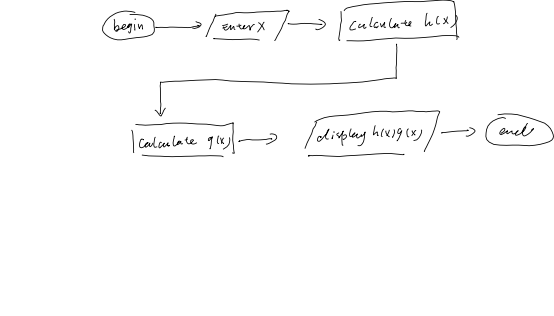 begin
enter x
calculate h(x)
calculate g(x)
display h(x)g(x)
end